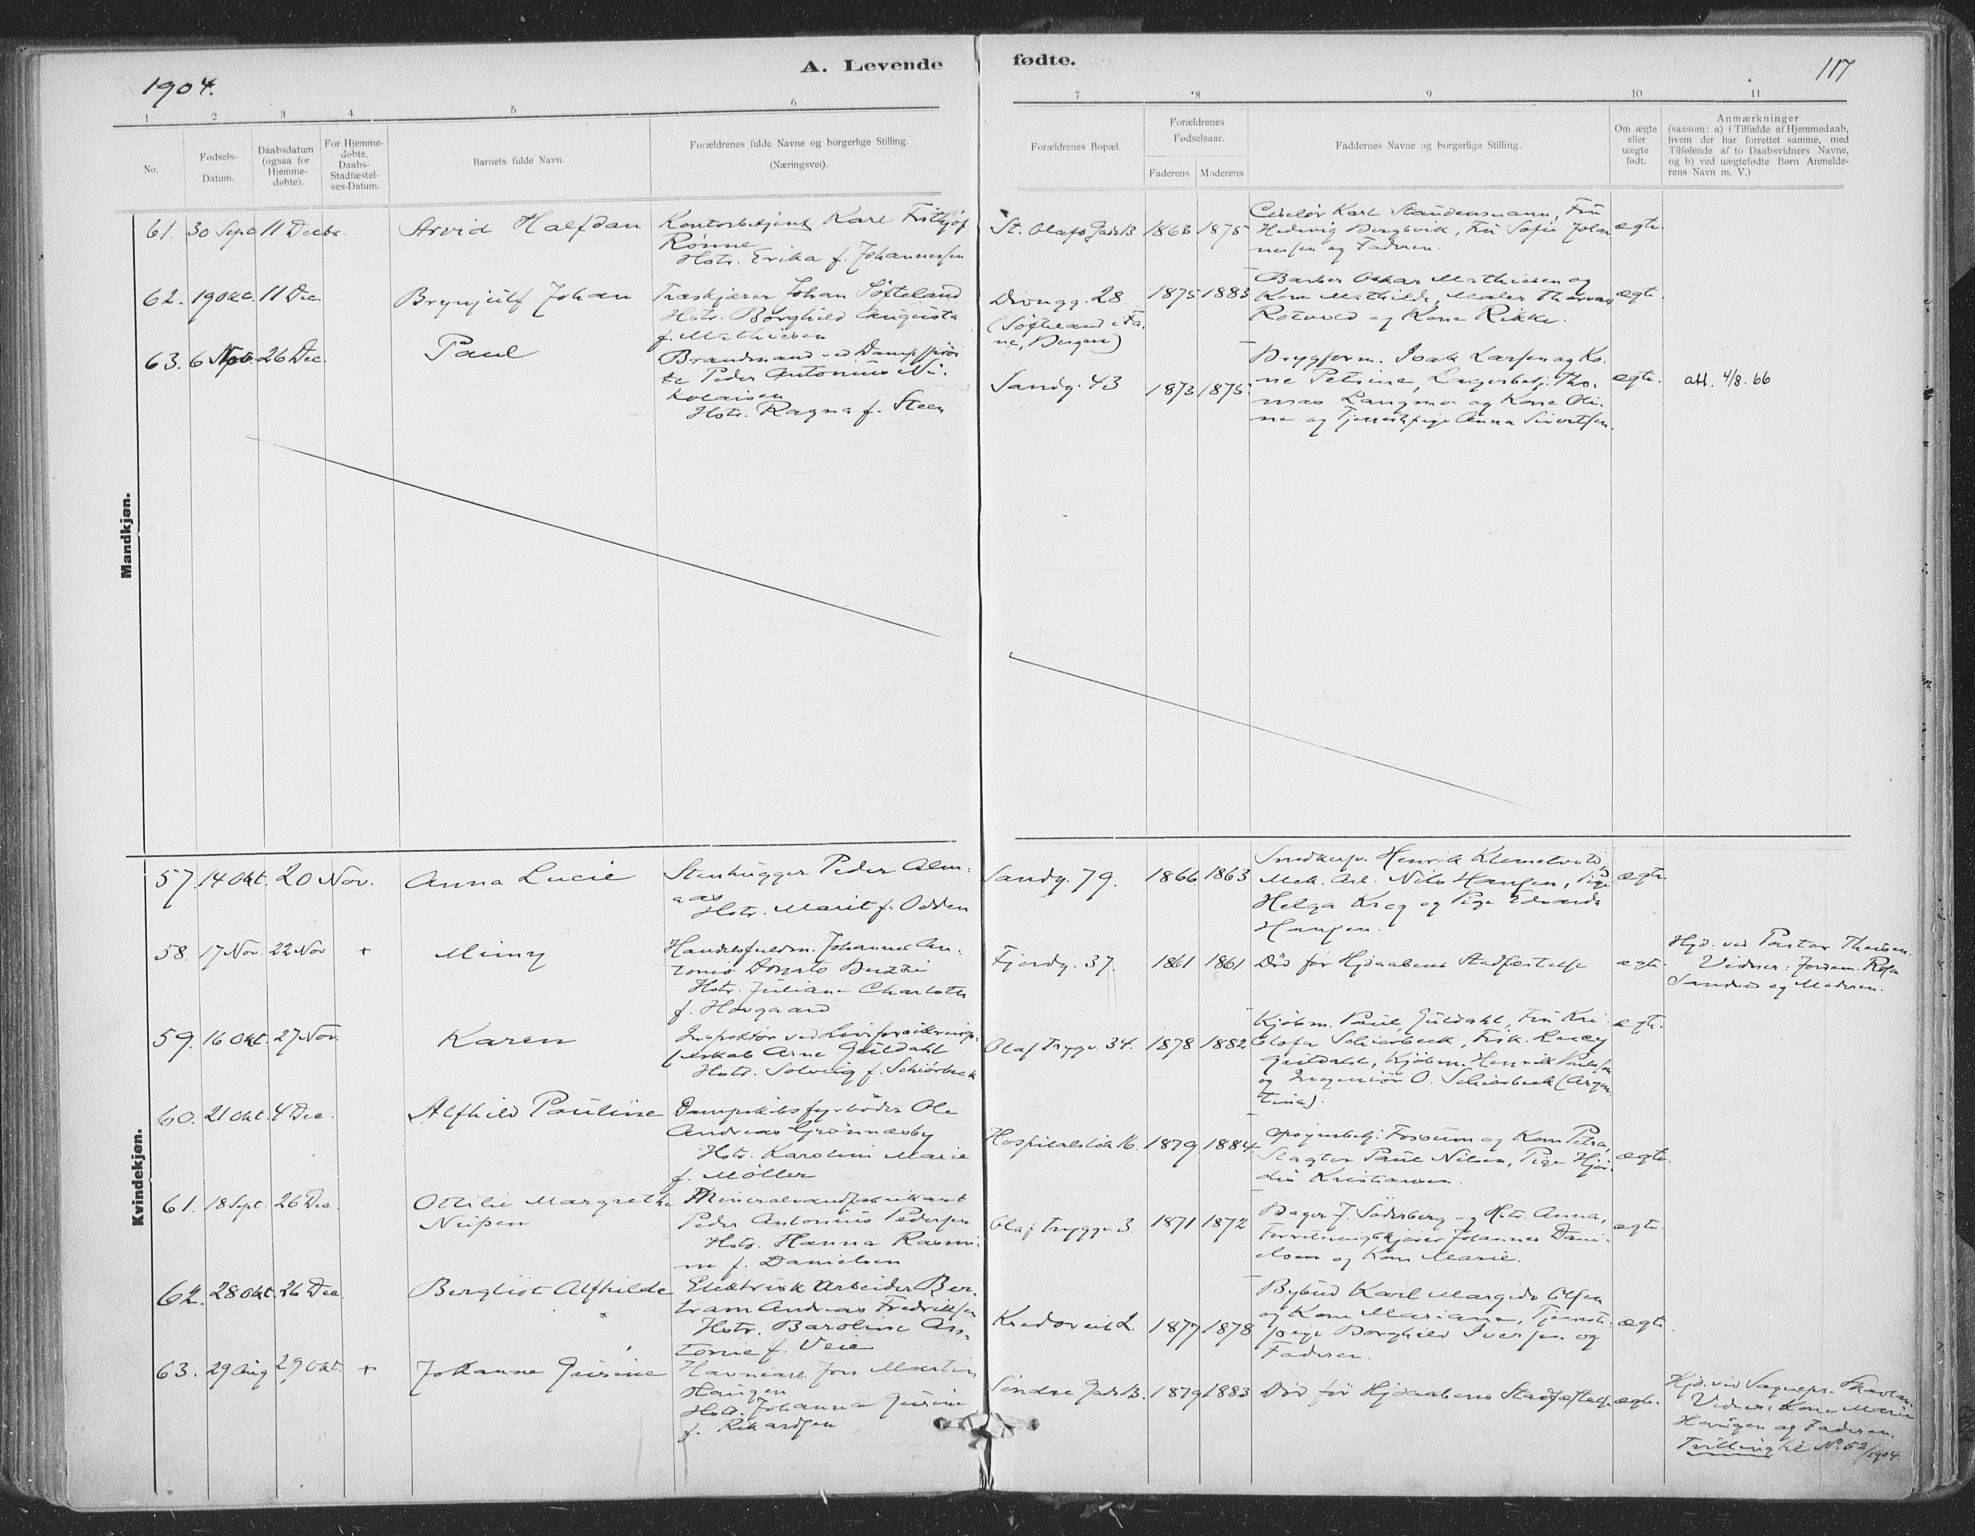 1904.
A. Levende fødte.
117
1 2 3 4 5 6 7 *8 9 10 11
No.
Fødsels-Datum.
Daabsdatum (ogsaa for Hjemme-døbte).
For Hjemme-døbte, Daabs-Stadfæstel-ses-Datum.
Barnets fulde Navn.
Forældrenes fulde Navne og borgerlige Stilling.
(Næringsvei).
Forældrenes Bopæl.
Forældrenes Fødselsaar.
Faderens Moderens
Faddernes Navne og borgerlige Stilling.
Om ægte eller uægte født.
Anmærkninger
(saasom: a) i Tilfælde af Hjemmedaab,
hvem der har forrettet samme, med
Tilføiende af to Daabsvidners Navne,
og b) ved uægtefødte Børn Anmelde-
rens Navn m. V.)
Mandkjøn.
61. 30 Sept. 11 Decbr. Arvid Halfdan
Kontorbetjent Karl Frithjof
Rønne
Hstr. Erika f. Johannessen
St. Olafs Gade 1863 1875
Ciselør Karl Staudensmann, Fru
Hedevig Bergsvik, Frk Sofie Johan
nessen og Faderen.
ægte
62. 19 Okt. 11 Dec. Brynjulf Johan
Træskjærer Johan Søfteland
Hstr. Borghild Augusta
f. Mathiesen
Dronng. 28.
(Søfteland i Fa-
ne, Bergen)
1875 1883
Barber Oskar Mathiesen og
Kone Mathilde, Maler Thorvas
Rotvold og Kone Rikke.
ægte.
63. 6 Nov. 26 Dec. Paul
Brandmand ved Dampsprøi
te Peder Antonius Ni-
kolaisen
Hstr. Ragna f. Steen
Sandg. 43 1873 1875
Brygform. Isak Larsen og Ko-
ne Petrine, Lagerbetj. Tho-
mas Langmo og Kone Oli-
ne og Tjenestepige Anna Sivertsen.
ægte. att. 4/8. 66
Kvindekjøn.
57. 14 Okt. 20 Nov. Anna Lucie
Stenhugger Peder Alm-
aas
Hstr. Marit f. Odden
Sandg. 79. 1866 1863
Snedkersv. Henrik Klemetvold
Mek. Arb. Nils Haugen, Pige
Helga Krog og Pige Edvarda
Haugen.
ægte
58. 17 Nov. 22 Nov + Mimy
Handelsfuldm. Johannes An-
tonio Donato
Hstr. Juliane Charlotte
f. Hovgaard
Fjordg. 37. 1861 1861
Død før Hjdaabens Stadfæstelse
ægte
Hjd. ved Pastor
Vidner: Jordem. Rosa
Sandvi og Moderen.
59. 16 Okt. 27 Nov. Karen
Inspektør ved Livsforsikrings-
selskab Arne Guldahl
Hstr. Solveig f. Schiørbeck
Olaf Trygv. 34. 1878 1882
Kjøbm. Paul Guldahl, Fru Kri-
Olafa Schiørbeck, Frk. Lucy
Guldahl, Kjøbm. Henrik
og Ingeniør O. Schiørbeck (Argen
tina).
ægte.
60. 21 Okt. 4 Dec. Alfhild Pauline
Dampskibsfyrbøder Ole
Andreas Grønnesby
Hstr. Karoline Marie
f. Møller
Hospitalsløk 16. 1879 1884
Fossum og Kone Petra,
Slagter Paul Nilsen, Pige Hjør-
dis Kristiansen.
ægte.
61. 18 Sept. 26 Dec. Ottilie Margrethe
Nissen
Mineralvandfabrikant
Peder Antonius Pedersen
Hstr. Hanna Rasmi-
ne f. Danielsen
Olaf Tryggv. 3. 1871 1872
Bager J. Söderberg og Hstr. Anna,
Forretningsfører Johannes Dani-
elsen og Kone Marie.
ægte.
62. 28 Okt. 26 Dec. Bergliot Alfhilde
Elektrisk Arbeider Ber-
tram Andreas Fredriksen
Hstr. Baroline An-
tonie f. Veie
1877 1878
Bybud Karl Olsen
og Kone Mariane, Tjeneste-
pige Borghild Iversen og
Faderen.
ægte
63. 29 Aug 29 Okt. + Johanne Gurine
Havnearb. Jon Martin
Haugen
Hstr. Johanna Gurine
f. Rikardsen
Søndre Gade 1879 1883
Død før Hjdaabens Stadfæstelse
ægte.
Hjd. ved Sognepr.
Vidner: Kone Marie
Haugen og Faderen.
Tvilling til No 52/1904